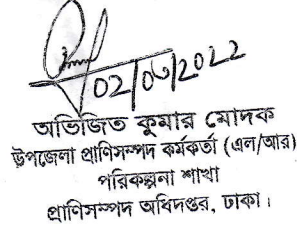 02/06/2022
অভিজিত কুমার মোদক
উপজেলা প্রাণিসম্পদ কর্মকর্তা (এল/আর)
পরিকল্পনা শাখা
প্রাণিসম্পদ অধিদপ্তর, ঢাকা।